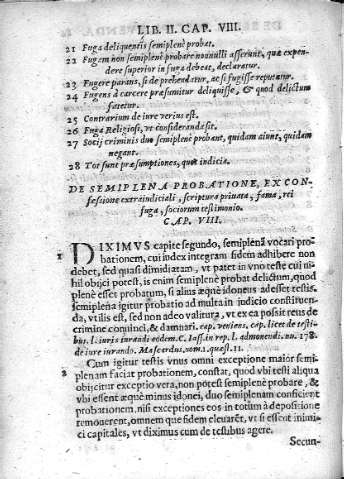 LIB. II. CAP. VIII.
21 Fuga deliquentis semiplenè probat.
22 Fugam non semiplenè probare nonnulli asserunt, quæ expen-
dere superior in fuga debeat, declaratur.
23 Fugere parans, si de prehendatur, ac si fugisse reputatur.
24 Fugens à carcere præsumitur deliquisse, & quod delictum
fatetur.
25 Contrarium de iure verius est.
26 Fuga Religiosi, vt consideranda sit.
27 Socij criminis duo semiplenè probant, quidam aiunt, quidam
negant.
28 Tot sunt præsumptiones, quot indicia.
DE SEMIPLENA PROBATIONE, EX CON-
fessione extraiudiciali, scriptura priuata, fama, rei
fuga, sociorum testimonio.
CAP. VIII.
1 DIXIMVS capite segundo, semiplenã vocari pro-
bationem, cui iudex integram fidem adhibere non
debet, sed quasi dimidiatam, vt patet in vno teste cui ni-
hil obijci potest, is enim semiplenè probat delictum, quod
plenè esset probatum, si alius æquè idoneus adesset testis.
Semiplena igitur probatio ad multa in iudicio constituen-
da, vtilis est, sed non adeo valitura, vt ex ea possit reus de
crimine conuinci, & damnari. cap. veniens, cap. licet de testi-
bus. l. iuris iurandi eodem C. Iass. in rep. l. admonendi. nu. 178.
de iure iurando. Mascardus, nom. 1. quæst. 11.
2 Cum igitur testis vnus omni exceptione maior semi-
plenam faciat probationem, constat, quod vbi testi aliqua
obijcitur exceptio vera, non potest semiplenè probare, &
vbi essent æquè minus idonei, duo semiplenam conficient
probationem, nisi exceptiones eos in totum à depositione
remouerent, omnem que fidem eleuarẽt, vt si essent inimi-
ci capitales, vt diximus cum de testibus agere.
Secun-